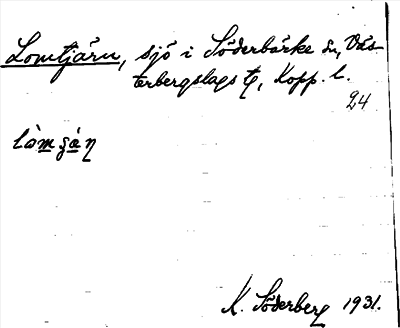 Lomtjärn, sjö i Söderbärke sn, Väs-
terbergslags tg, Kopp. l.
24
làmʂàn
K. Söderberg 1931.